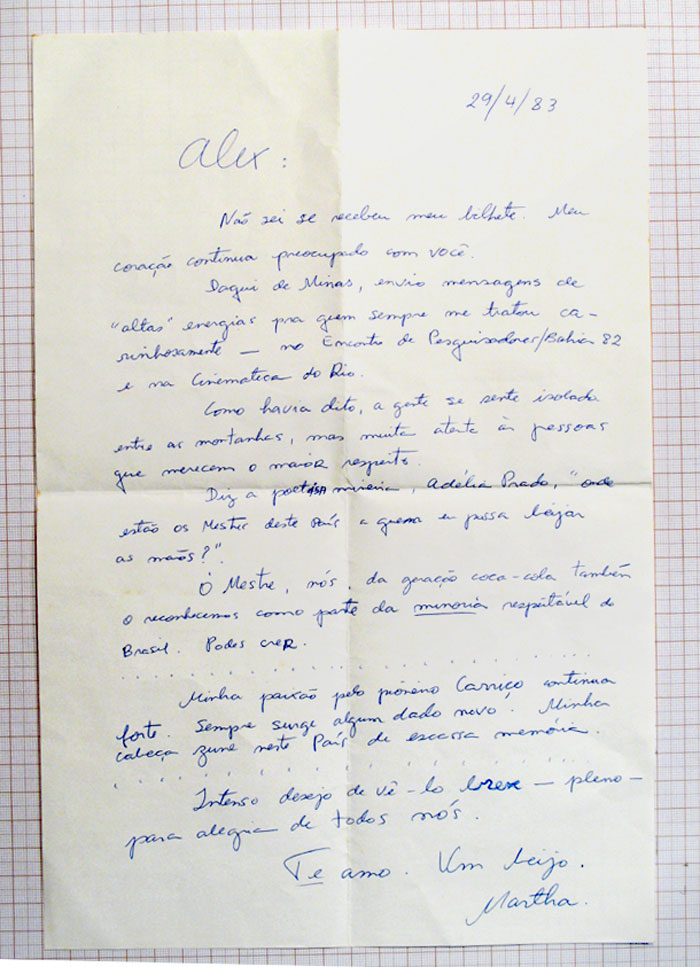 29/4/83
Alex:
Não sei se recebeu meu bilhete. Meu
coração continua preocupado com você.
Daqui de Minas, envio mensagens de
"altas" energias pra quem sempre me tratou ca-
rinhosamente — no Encontro de Pesquisadores/Bahia 82
e na Cinemateca do Rio.
Como havia dito, a gente se sente isolada
entre as montanhas, mas muito atenta às pessoas
que merecem o maior respeito.
Diz a poetisa mineira, Adélia Prado, "onde
estão os Mestres deste País a quem eu possa beijar
as mãos?".
Ó Mestre, nós, da geração coca-cola também
o reconhecemos como parte da minoria respeitável do
Brasil. Podes crer.
Minha paixão pelo pioneiro Carriço continua
forte. Sempre surge algum dado novo. Minha
cabeça zune neste País de escassa memória.
Intenso desejo de vê-lo breve — pleno —
para alegria de todos nós.
Te amo. Um beijo.
Martha.